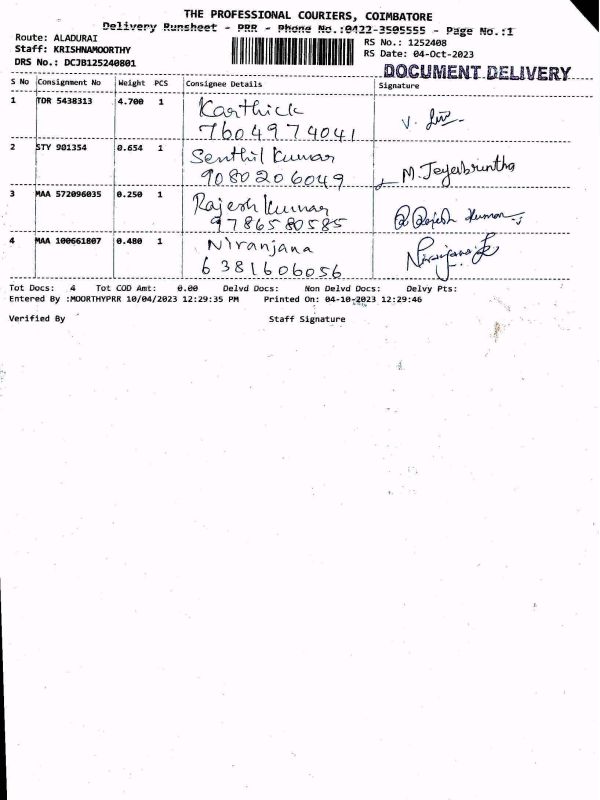 THE PROFESSIONAL COURIERS, COIMBATORE
Delivery Runsheet - PRR - Phone No.:0422-3505555 - Page No.:1
Route: ALADURAI
RS No.: 1252408
Staff: KRISHNAMOORTHY
RS Date: 04-Oct-2023
DRS No.: DCJB125240801
DOCUMENT DELIVERY
S No Consignment No Weight PCS Consignee Details Signature
1 TDR 5438313 4.700 1 Karthick
7604974041
2 STY 901354 0.654 1 Senthil Kumar
9080206049 M. Jeyabruntha
3 MAA 572096035 0.250 1 Rajesh Kumar
9786580585 Rajesh Kumar
4 MAA 100661807 0.480 1 Niranjana Niranjana
6381606056
Tot Docs: 4 Tot COD Amt: 0.00 Delvd Docs: Non Delvd Docs: Delvy Pts:
Entered By :MOORTHYPRR 10/04/2023 12:29:35 PM Printed On: 04-10-2023 12:29:46
Verified By Staff Signature